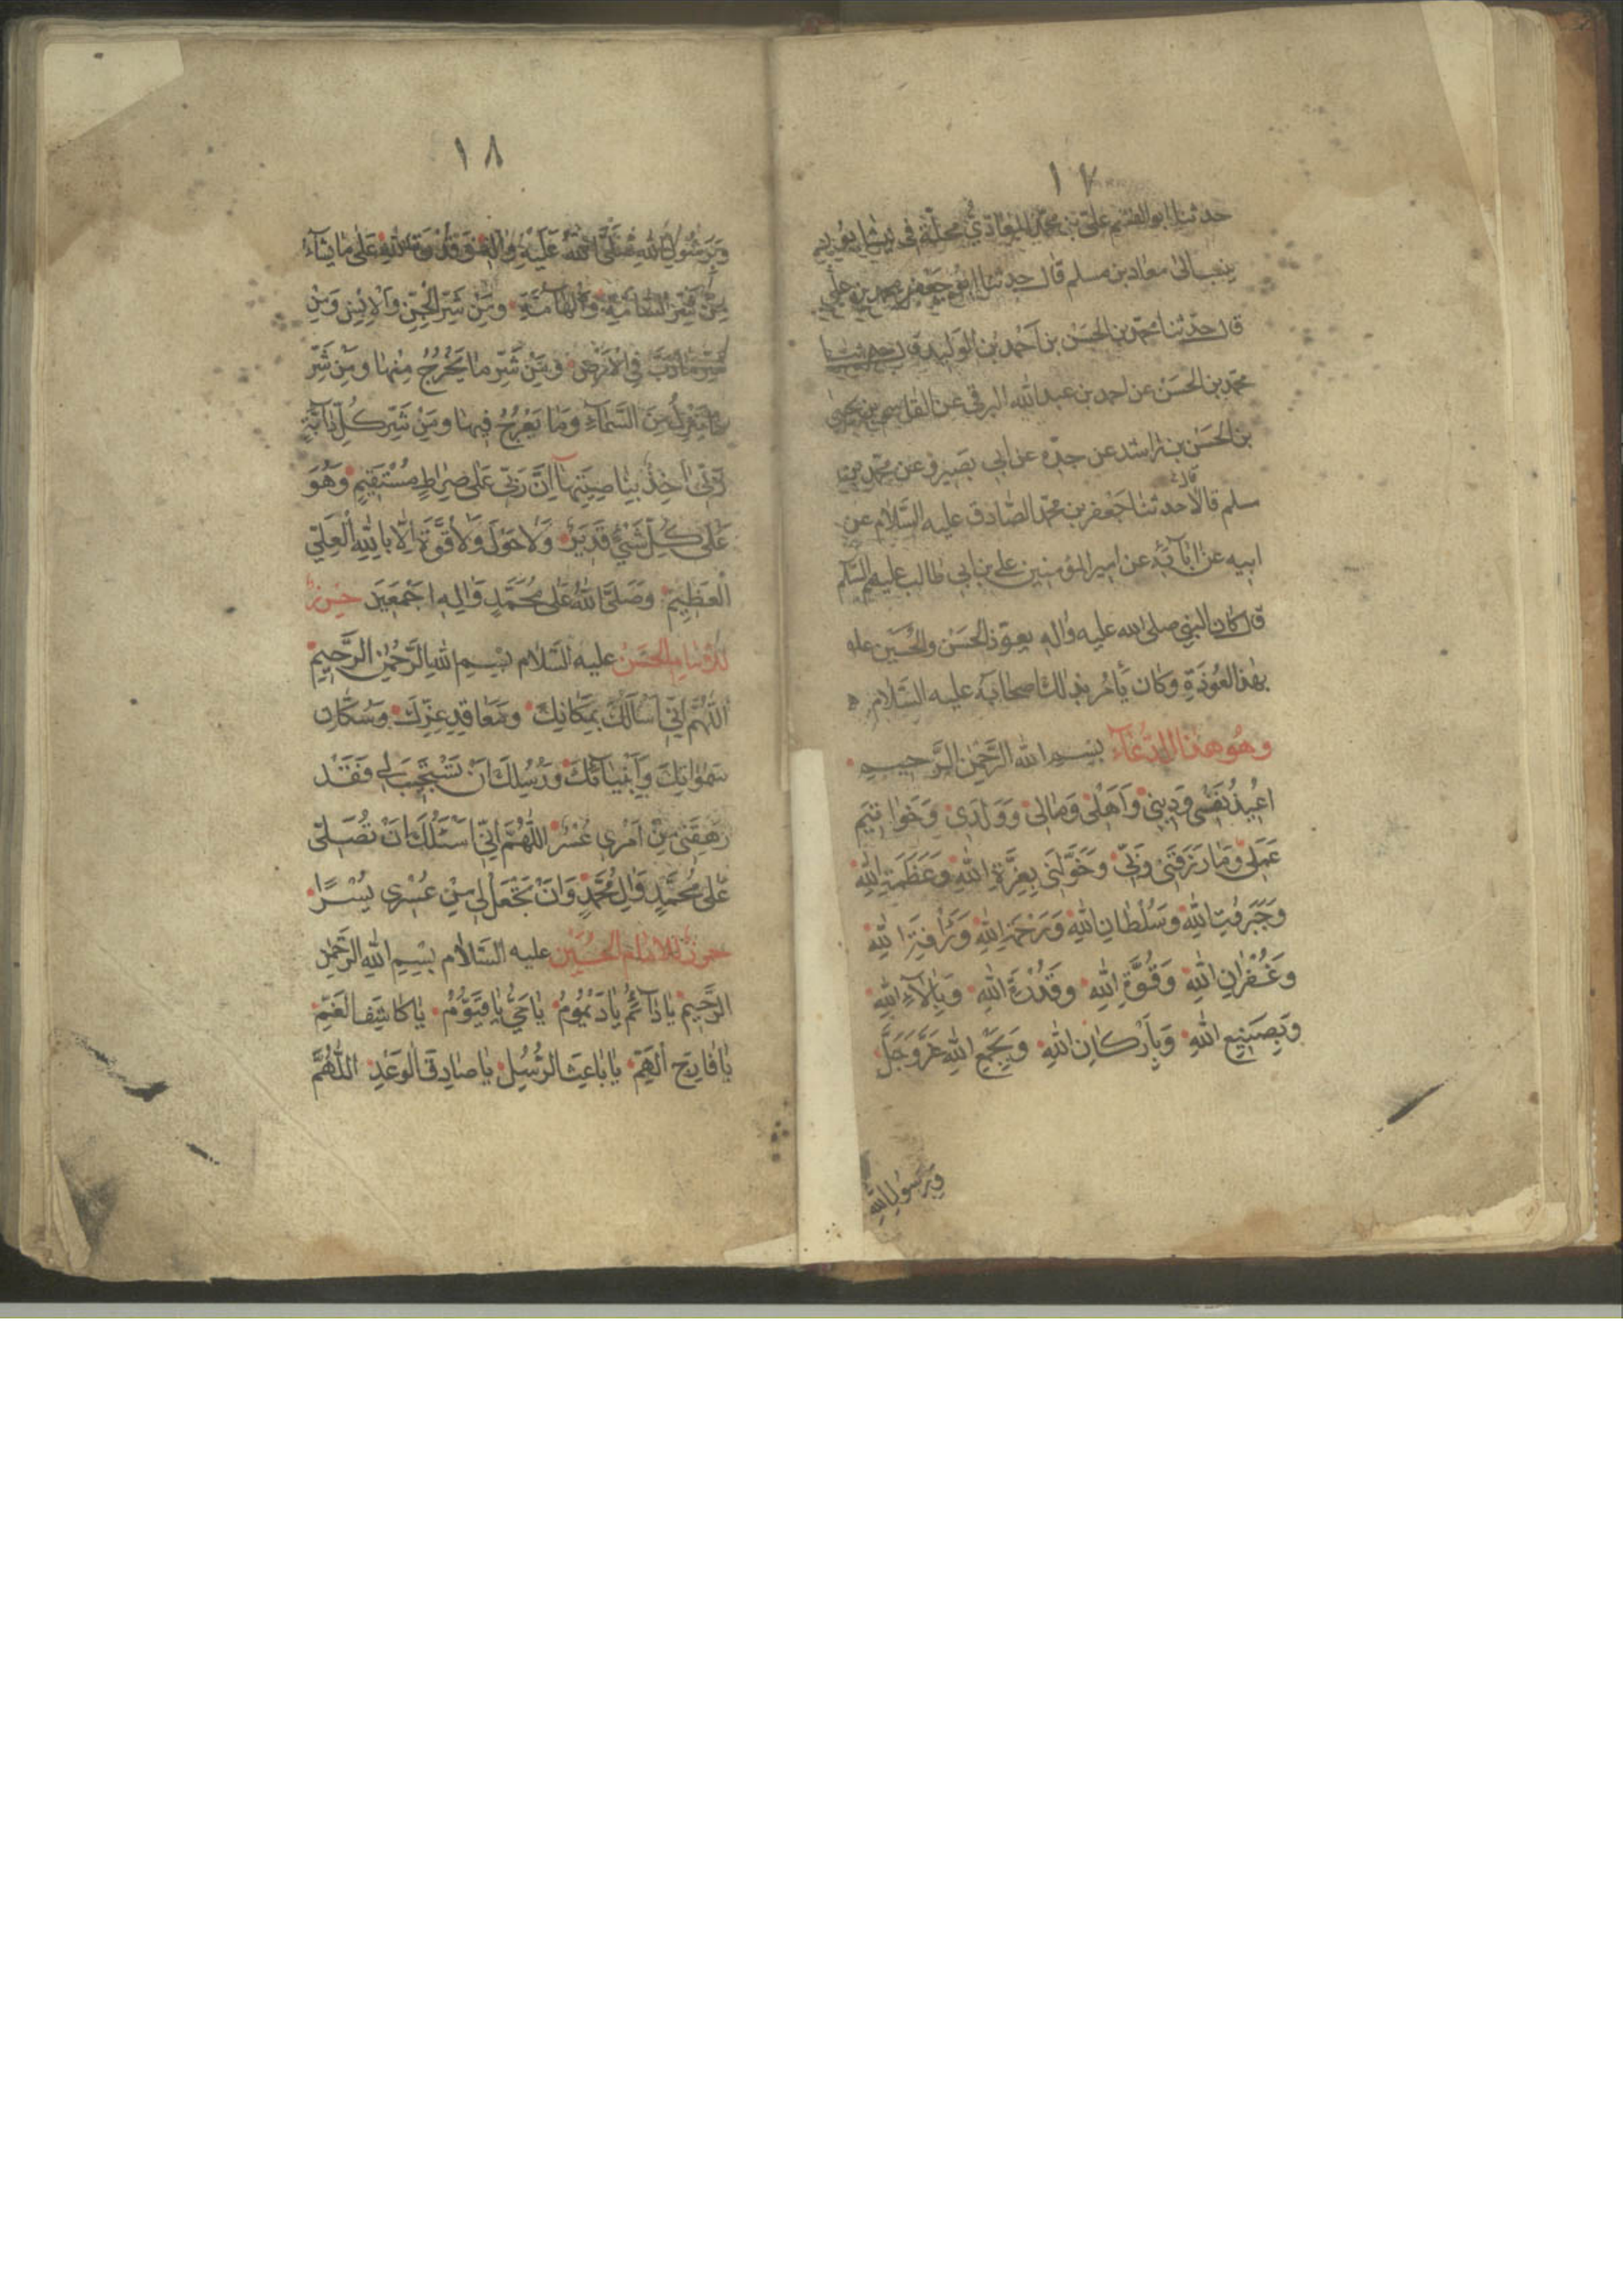 ١٧
حدثنا ابو القسم علي بن محمد المعاذي محلة في نيشابور
ينسب الى معاذ بن مسلم قال حدثنا ابو جعفر محمد بن علي
قال حدثنا محمد بن الحسن بن احمد بن الوليد قال حدثنا
محمد بن الحسن عن احمد بن عبد الله البرقي عن القاسم بن يحيى
بن الحسن بن راشد عن جده عن ابي بصير وعن محمد بن
مسلم قالا حدثنا جعفر بن محمد الصادق عليه السلام عن
ابيه عن آبائه عن امير المؤمنين علي بن ابي طالب عليهم السلام
قال كان النبي صلى الله عليه واله يعوذ الحسن والحسين
بهذا العوذة وكان يأمر بذلك اصحابه عليه السلام
وهو هذا الدعاء بسم الله الرحمن الرحيم
اعيذ نفسي وديني واهلي ومالي وولدي وخواتيم
عملي وما رزقني ربي وخولني بعزة الله وعظمة الله
وجبروت الله وسلطان الله ورحمة الله ورأفة الله
وغفران الله وقوة الله وقدرة الله وبآلاء الله
وبصنيع الله وباركان الله وبجمع الله عز وجل
وبرسول الله
١٨
وبرسول الله صلى الله عليه واله وقدرة الله على ما يشاء
من شر السامة والهامة ومن شر الجن والانس ومن
شر ما دب في الارض ومن شر ما يخرج منها ومن شر
ما ينزل من السماء وما يعرج فيها ومن شر كل دابة
ربي آخذ بناصيتها ان ربي على صراط مستقيم وهو
على كل شيء قدير ولا حول ولا قوة الا بالله العلي
العظيم وصلى الله على محمد واله اجمعين حرز
للامام الحسن عليه السلام بسم الله الرحمن الرحيم
اللهم اني اسألك بمكانك ومعاقد عزك وسكان
سمواتك وانبيائك ورسلك ان تستجيب لي فقد
رهقني من امري عسر اللهم اني اسئلك ان تصلي
على محمد وال محمد وان تجعل لي من عسري يسرا
حرز للامام الحسين عليه السلام بسم الله الرحمن
الرحيم يا دائم يا ديموم يا حي يا قيوم يا كاشف الغم
يا فارج الهم يا باعث الرسل يا صادق الوعد اللهم